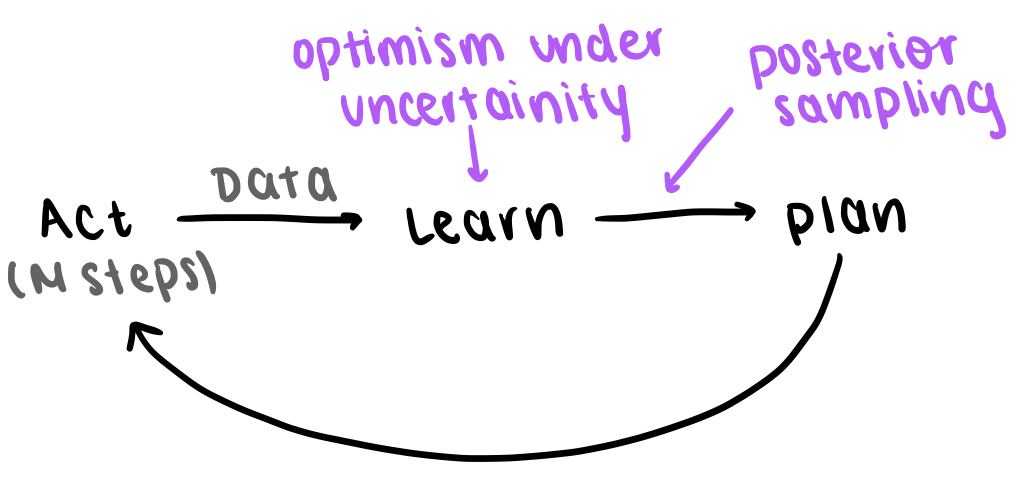 optimism under
uncertainity
posterior
sampling
Data
Act
Learn
plan
(N steps)